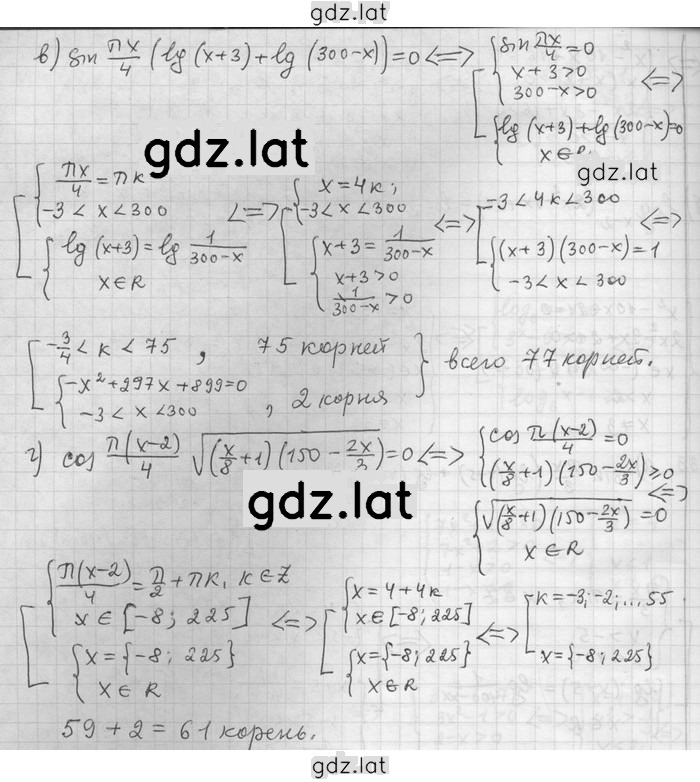 gdz.lat
в) sin πx/4 (lg (x+3) + lg (300-x)) = 0 <=> [ { sin πx/4 = 0
x + 3 > 0
300-x > 0 <=>
{ lg (x+3) + lg (300-x) = 0
x ∈ R.
gdz.lat
gdz.lat
[ { πx/4 = πk
-3 < x < 300
{ lg (x+3) = lg 1/(300-x)
x ∈ R
<=> [ { x = 4k;
-3 < x < 300
{ x+3 = 1/(300-x)
x+3 > 0
1/(300-x) > 0
<=> [ -3 < 4k < 300
{ (x+3)(300-x) = 1
-3 < x < 300
<=>
[ -3/4 < k < 75, 75 корней
{ -x² + 297x + 899 = 0
-3 < x < 300, 2 корня } всего 77 корней.
г) cos π(x-2)/4 √((x/8 + 1)(150 - 2x/3)) = 0 <=> [ { cos π(x-2)/4 = 0
(x/8 + 1)(150 - 2x/3) ≥ 0 <=>
{ √((x/8 + 1)(150 - 2x/3)) = 0
x ∈ R
gdz.lat
[ { π(x-2)/4 = π/2 + πk, k ∈ Z
x ∈ [-8; 225]
{ x = {-8; 225}
x ∈ R
<=> [ { x = 4 + 4k
x ∈ [-8; 225]
{ x = {-8; 225}
x ∈ R
<=> [ k = -3; -2; ... 55
x = {-8; 225}
59 + 2 = 61 корень.
gdz.lat